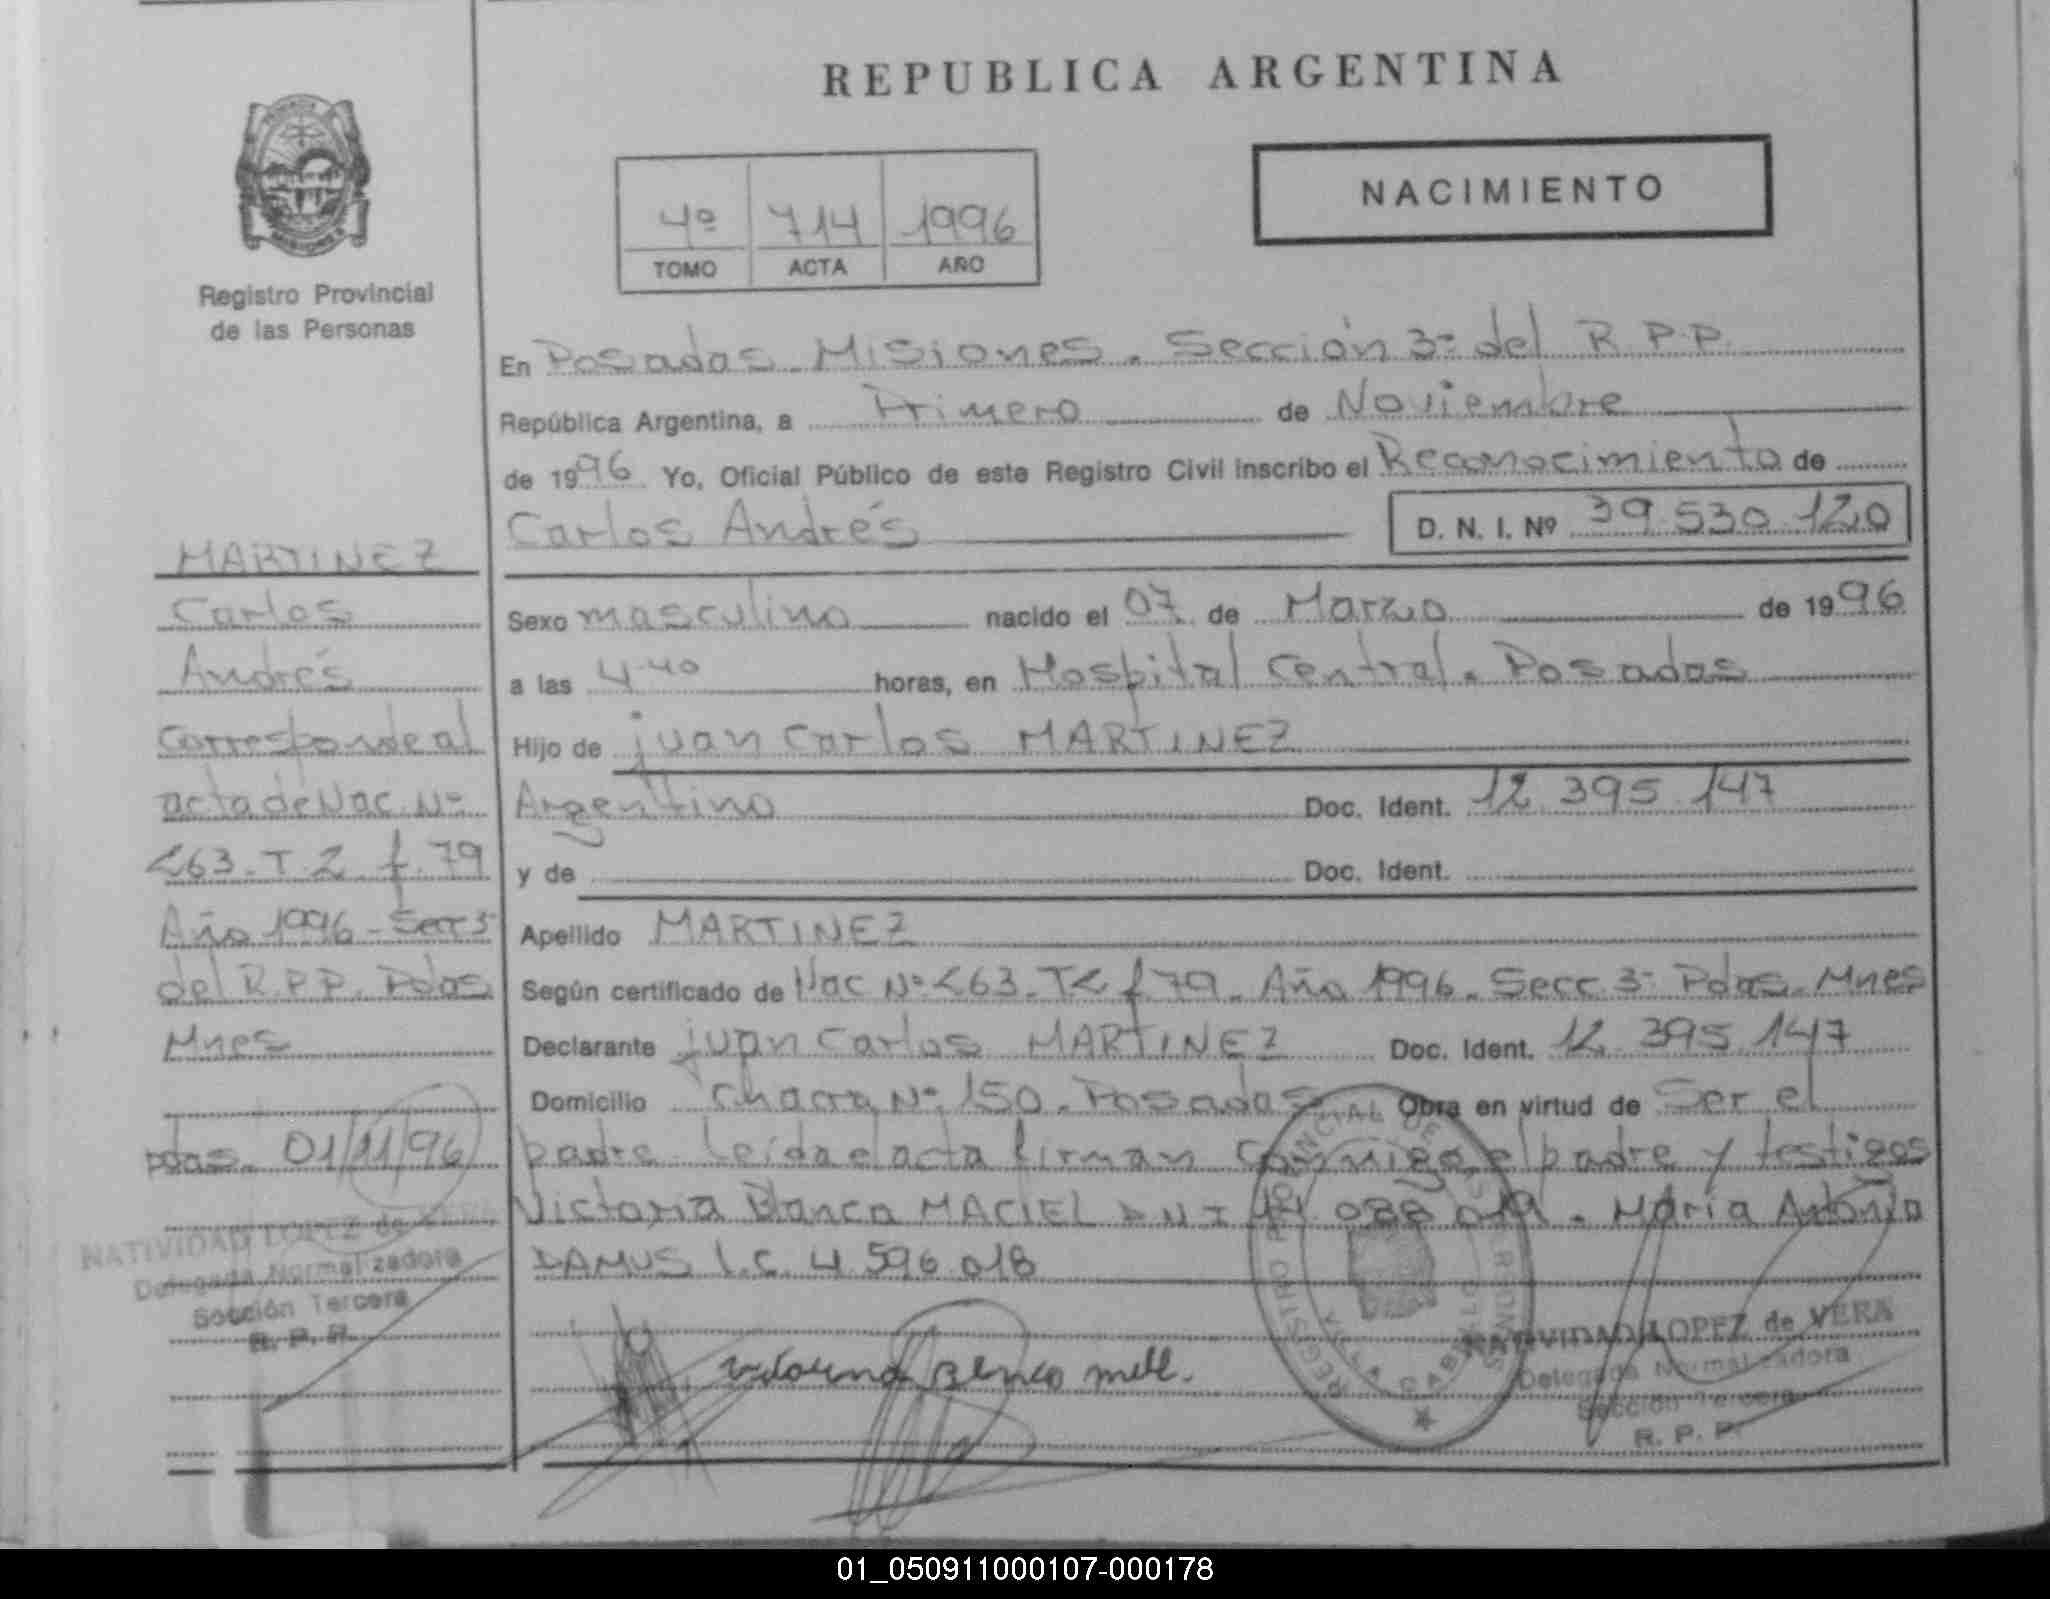 REPUBLICA ARGENTINA
NACIMIENTO
4º 714 1996
TOMO ACTA AÑO
Registro Provincial
de las Personas
En Posadas Misiones. Sección 3ª del R.P.P.
República Argentina, a Primero de Noviembre
de 1996 Yo, Oficial Público de este Registro Civil inscribo el Reconocimiento de
Carlos Andrés D. N. I. Nº 39.530.120
Sexo masculino nacido el 07 de Marzo de 1996
a las 4.40 horas, en Hospital Central. Posadas
Hijo de juan Carlos MARTINEZ
Argentino Doc. Ident. 12.395.147
y de Doc. Ident.
Apellido MARTINEZ
Según certificado de Nac Nº 263. T2 f 79. Año 1996. Secc. 3ª Pdas. Mnes
Declarante juan Carlos MARTINEZ Doc. Ident. 12.395.147
Domicilio Chacra Nº 150. Posadas Obra en virtud de Ser el
padre. Leida el acta firman conmigo el padre y testigos
Victoria Blanca MACIEL DNI 088 019. María Antonia
DAMUS L.C. 4.596.018
MARTINEZ
Carlos
Andrés
Corresponde al
acta de Nac. Nº
263. T. 2 f. 79
Año 1996 - Secc 3ª
del R.P.P. Pdas
Mnes
pdas. 01/11/96
NATIVIDAD LOPEZ de VERA
Delegada Normalizadora
Sección Tercera
R. P. P.
NATIVIDAD LOPEZ de VERA
Delegada Normalizadora
Sección Tercera
R. P. P.
01_050911000107-000178